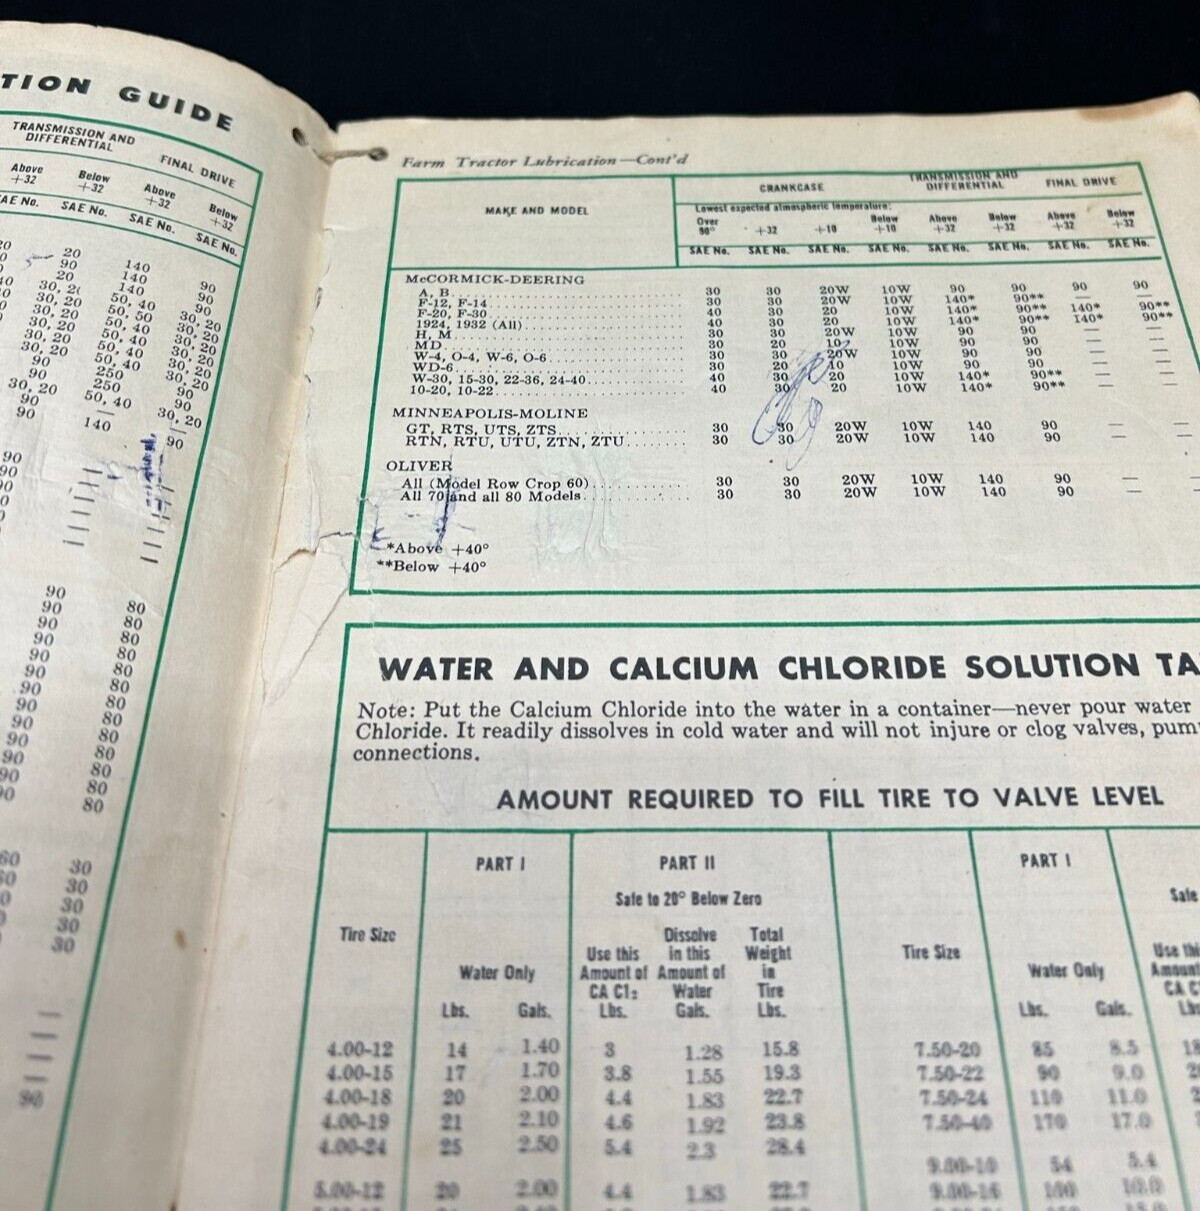 TION GUIDE
TRANSMISSION AND DIFFERENTIAL FINAL DRIVE
Above +32 Below +32 Above +32 Below +32
SAE No. SAE No. SAE No. SAE No.
20 140 90
90 140 90
20 140 90
30, 20 50, 40 30, 20
30, 20 50, 50 30, 20
30, 20 50, 40 30, 20
30, 20 50, 40 30, 20
30, 20 50, 40 30, 20
90 250 90
90 250 90
30, 20 50, 40 30, 20
90 —
90 140 90
90
90
90
90 80
90 80
90 80
90 80
90 80
90 80
90 80
90 80
90 80
90 80
90 80
90 80
80
60 30
60 30
30
30
30
Farm Tractor Lubrication—Cont'd
MAKE AND MODEL CRANKCASE TRANSMISSION AND DIFFERENTIAL FINAL DRIVE
Lowest expected atmospheric temperature:
Over 90° +32 +10 Below +10 Above +32 Below +32 Above +32 Below +32
SAE No. SAE No. SAE No. SAE No. SAE No. SAE No. SAE No. SAE No.
McCORMICK-DEERING
A, B 30 30 20W 10W 90 90 90 90
F-12, F-14 30 30 20W 10W 140* 90** — —
F-20, F-30 40 30 20 10W 140* 90** 140* 90**
1924, 1932 (All) 40 30 20 10W 140* 90** 140* 90**
H, M 30 30 20W 10W 90 90 — —
MD 30 20 10 10W 90 90 — —
W-4, O-4, W-6, O-6 30 30 20W 10W 90 90 — —
WD-6 30 20 10 10W 90 90 — —
W-30, 15-30, 22-36, 24-40 40 30 20 10W 140* 90** — —
10-20, 10-22 40 30 20 10W 140* 90** — —
MINNEAPOLIS-MOLINE
GT, RTS, UTS, ZTS 30 30 20W 10W 140 90 — —
RTN, RTU, UTU, ZTN, ZTU 30 30 20W 10W 140 90 — —
OLIVER
All (Model Row Crop 60) 30 30 20W 10W 140 90 — —
All 70 and all 80 Models 30 30 20W 10W 140 90 — —
*Above +40°
**Below +40°
WATER AND CALCIUM CHLORIDE SOLUTION TA
Note: Put the Calcium Chloride into the water in a container—never pour water
Chloride. It readily dissolves in cold water and will not injure or clog valves, pum
connections.
AMOUNT REQUIRED TO FILL TIRE TO VALVE LEVEL
PART I PART II PART I
Safe to 20° Below Zero Safe
Tire Size Water Only Use this Amount of CA Cl₂ Dissolve in this Amount of Water Total Weight in Tire Tire Size Water Only Use this Amount CA C
Lbs. Gals. Lbs. Gals. Lbs. Lbs. Gals. Lbs
4.00-12 14 1.40 3 1.28 15.8 7.50-20 85 8.5 18
4.00-15 17 1.70 3.8 1.55 19.3 7.50-22 90 9.0
4.00-18 20 2.00 4.4 1.83 22.7 7.50-24 110 11.0
4.00-19 21 2.10 4.6 1.92 23.8 7.50-40 170 17.0
4.00-24 25 2.50 5.4 2.3 28.4
9.00-10 54 5.4
5.00-12 20 2.00 4.4 1.83 22.7 9.00-16 100 10.0